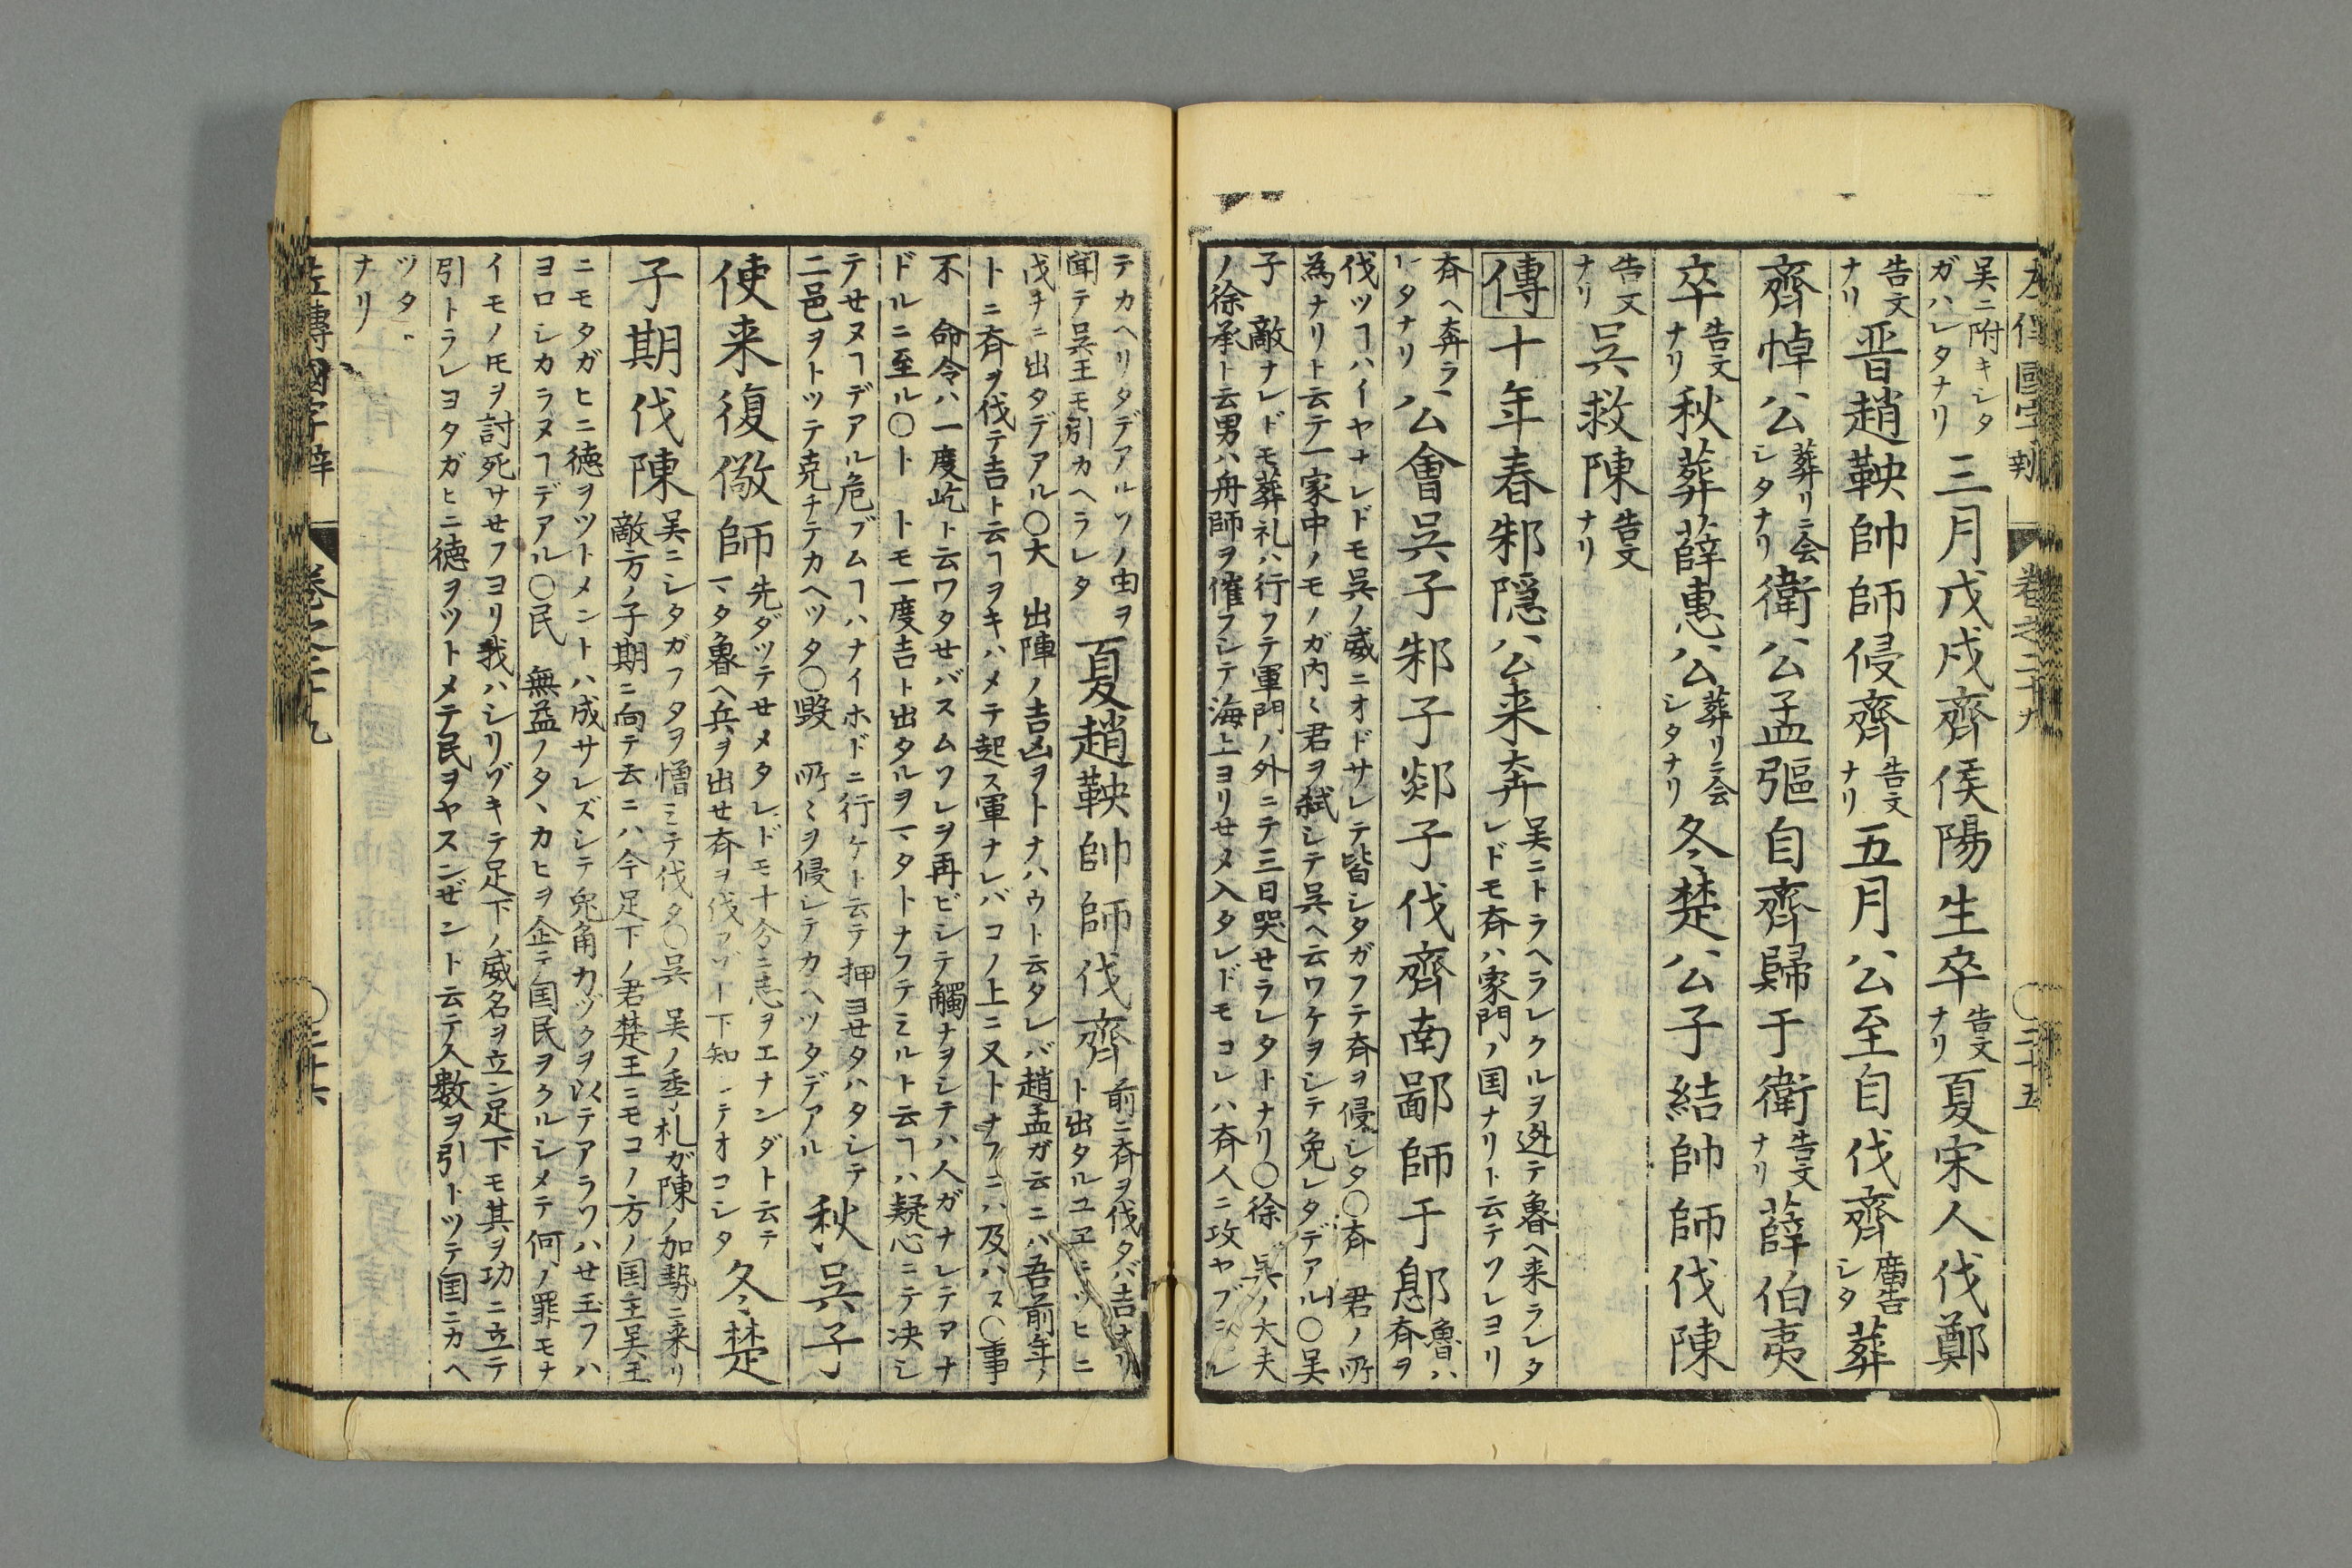 呉ニ附キシタ
ガハレタナリ
三月戊戌齊侯陽生卒
告文
ナリ
夏宋人伐鄭
告文
ナリ
晋趙鞅帥師侵齊
告文
ナリ
五月公至自伐齊
廣告
シタ
葬
齊悼公
葬リニ会
シタナリ
衛公孟彄自齊歸于衛
告文
ナリ
薛伯夷
卒
告文
ナリ
秋葬薛惠公
葬リニ会
シタナリ
冬楚公子結帥師伐陳
告文
ナリ
呉救陳
告文
ナリ
傳十年春邾隱公来奔
呉ニトラヘラレクルヲ迯テ魯ヘ来ラレタ
レドモ斉ハ家門ノ国ナリト云テソレヨリ
斉ヘ奔ラ
レタナリ
公會呉子邾子郯子伐齊南鄙師于鄎
魯ハ
斉ヲ
伐ツヿハイヤナレドモ呉ノ威ニオドサレテ皆シタガフテ斉ヲ侵シタ〇斉 君ノ所
為ナリト云テ一家中ノモノガ内々君ヲ弑シテ呉ヘ云ワケヲシテ免レタデアル〇呉
子 敵ナレドモ葬礼ハ行フテ軍門ノ外ニテ三日哭セラレタトナリ〇徐 呉ノ大夫
ノ徐承ト云男ハ舟師ヲ催フシテ海上ヨリセメ入タレドモコレハ斉人ニ攻ヤブラレ
テカヘリタデアルソノ由ヲ
聞テ呉王モ引カヘラレタ
夏趙鞅帥師伐齊
前ニ斉ヲ伐タバ吉ナリ
ト出タルユヱニツヒニ
伐チニ出タデアル〇大 出陣ノ吉凶ヲトナハウト云タレバ趙孟ガ云ニハ吾前年
トニ斉ヲ伐テ吉ト云ヿヲキハメテ起ス軍ナレバコノ上ニ又トナフニハ及ハス〇事
不 命令ハ一度屹ト云ワタセバスムソレヲ再ビシテ觸ナヲシテハ人ガナレテアナ
ドルニ至ル〇ト トモ一度吉ト出タルヲマタトナフテミルト云ヿハ疑心ニテ决シ
テセヌヿデアル危ブムヿハナイホドニ行ケト云テ押ヨセタハタシテ
二邑ヲトツテ克チテカヘツタ〇毀 所々ヲ侵シテカヘツタデアル
秋呉子
使来復儆師
先ダツテセメタレドモ十分ニ志ヲエナンダト云テ
マタ魯ヘ兵ヲ出セ斉ヲ伐フゾト下知シテオコシタ
冬楚
子期伐陳
呉ニシタガフタヲ憎ミテ伐タ〇呉 呉ノ季札ガ陳ノ加勢ニ来リ
敵方ノ子期ニ向テ云ニハ今足下ノ君楚王ニモコノ方ノ国主呉王
ニモタガヒニ徳ヲツトメントハ成サレズシテ兎角カヅクヲ以テアラソハセ玉フハ
ヨロシカラヌヿデアル〇民 無益ノタヽカヒヲ企テ国民ヲクルシメテ何ノ罪モナ
イモノ𪜈ヲ討死サセフヨリ我ハシリゾキテ足下ノ威名ヲ立ン足下モ其ヲ功ニ立テ
引トラレヨタガヒニ徳ヲツトメテ民ヲヤスンゼント云テ人数ヲ引トツテ国ニカヘ
ツタ
ナリ
左傳國字辯
巻之二十九
〇二十六